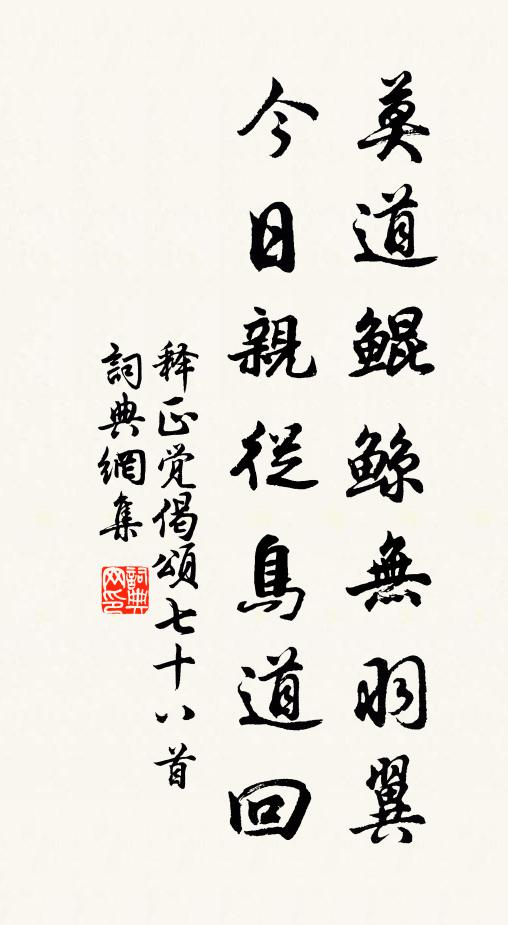 莫道鯤鯨無羽翼
今日親從鳥道回
释正覚偈頌七十八首
詞典網集
詞典网印